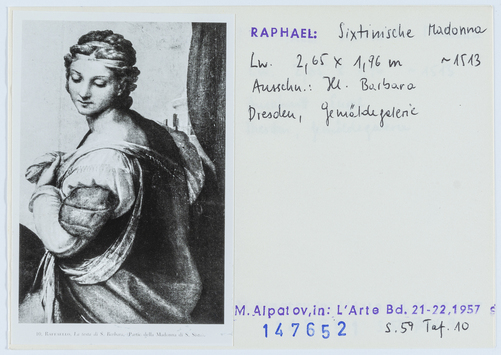 RAPHAEL: Sixtinische Madonna
Lw. 2,65 x 1,96 m ~1513
Ausschn.: Hl. Barbara
Dresden, Gemäldegalerie
M. Alpatov, in: L'Arte Bd. 21-22, 1957
147652 S. 59 Taf. 10
10. RAFFAELLO, La testa di S. Barbara (Parte della Madonna di S. Sisto).